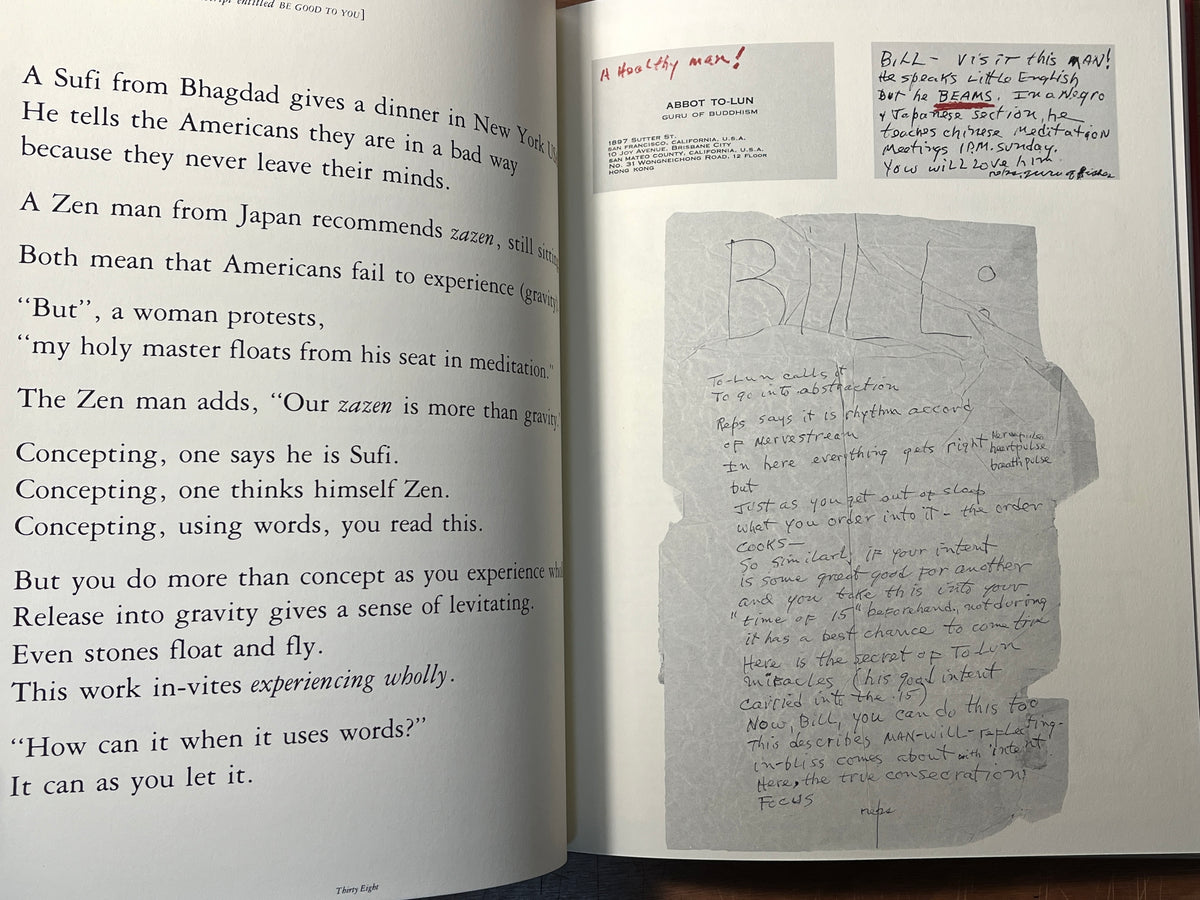 entitled BE GOOD TO YOU]
A Sufi from Bhagdad gives a dinner in New York
He tells the Americans they are in a bad way
because they never leave their minds.
A Zen man from Japan recommends zazen, still
Both mean that Americans fail to experience (gravity
“But”, a woman protests,
“my holy master floats from his seat in meditation.”
The Zen man adds, “Our zazen is more than gravity
Concepting, one says he is Sufi.
Concepting, one thinks himself Zen.
Concepting, using words, you read this.
But you do more than concept as you experience
Release into gravity gives a sense of levitating.
Even stones float and fly.
This work in-vites experiencing wholly.
“How can it when it uses words?”
It can as you let it.
Thirty Eight
A Healthy man!
ABBOT TO-LUN
GURU OF BUDDHISM
1897 SUTTER ST.
SAN FRANCISCO, CALIFORNIA, U.S.A.
10 JOY AVENUE, BRISBANE CITY
SAN MATEO COUNTY, CALIFORNIA, U.S.A.
NO. 31 WONGNEICHONG ROAD, 12 FLOOR
HONG KONG
BILL - VISIT this MAN!
He speaks Little English
But he BEAMS. In a Negro
& Japanese section, he
teaches chinese meditation
Meetings 1 P.M. Sunday.
You will love him.
reps, guru of
BILL:
To-Lun calls it
To go into abstraction
Reps says it is rhythm accord
of Nervestream
In here everything gets right
heartpulse
breathpulse
but
Just as you get out of sleep
what you order into it - the order
cooks—
So similarly if your intent
is some great good for another
and you take this into your
"time of 15" beforehand, not during
it has a best chance to come true
Here is the secret of To-Lun
miracles (his good intent
carried into the .15)
Now, Bill, you can do this too
This describes MAN-will-reflecting-
in-bliss comes about with intent.
Here, the true consecration
Focus
reps